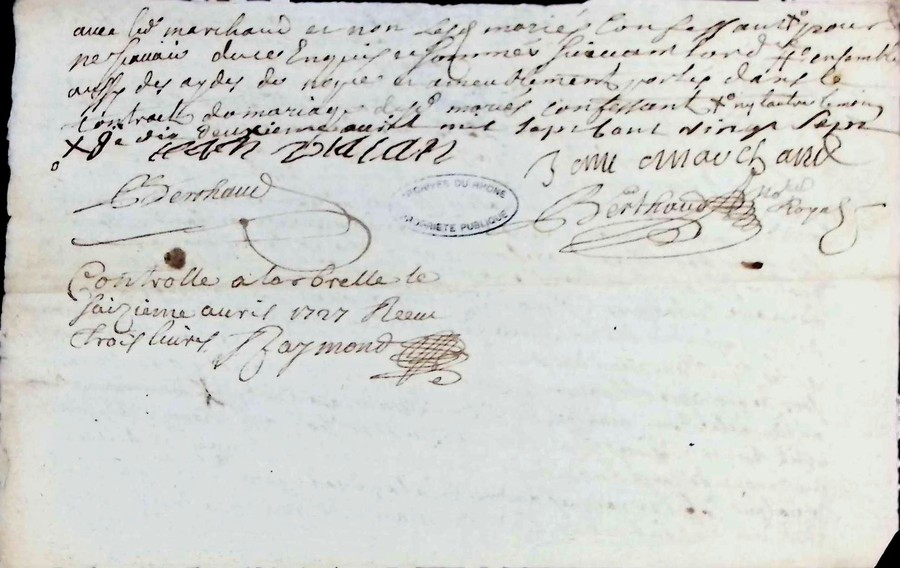 avec led marchand et non lesd mariés Confessantz pour
ne scavoir de ce Enquis et sommes suivant lord ensemble
des aydes du nopce et ameublement portés dans le
Contract du mariage desd mariés confessant
deuxieme avril mil sept cent vingt sept
Jean
marchand
Berthaud
Berthaud no.re Royal
ARCHIVES DU RHONE
PROPRIETE PUBLIQUE
Controlle a larbrelle le
saizieme avril 1727 Receu
trois livres Raymond